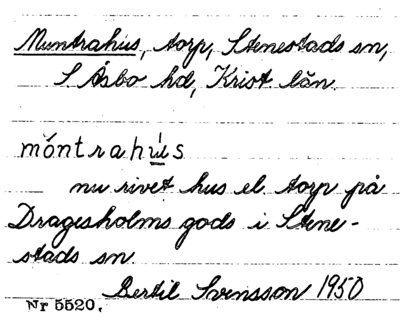 Muntrahus, torp, Stenestads sn,
S. Åsbo hd, Krist. län.
móntrahú̲s
nu rivet hus el. torp på
Dragesholms gods i Stene-
stads sn.
Bertil Svensson 1950
Nr 5520.